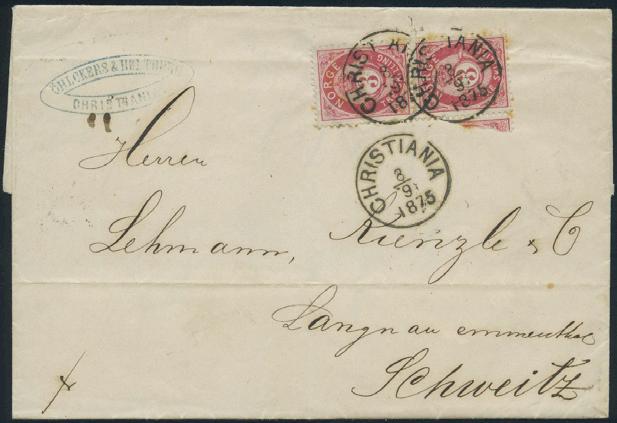 CHRISTIANIA
NORGE
3
CHRISTIANIA
8/9
1875
CHRISTIANIA
3
1875
CHRISTIANIA
8/9
1875
Herren
Lehmann, Kienzle & C
Langnau emmenthal
Schweitz